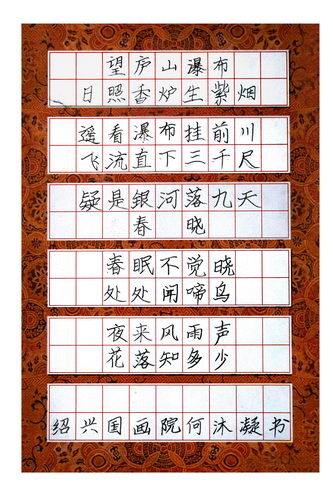 望庐山瀑布
日照香炉生紫烟
遥看瀑布挂前川
飞流直下三千尺
疑是银河落九天
春 晓
春眠不觉晓
处处闻啼鸟
夜来风雨声
花落知多少
绍兴国画院何沐凝书